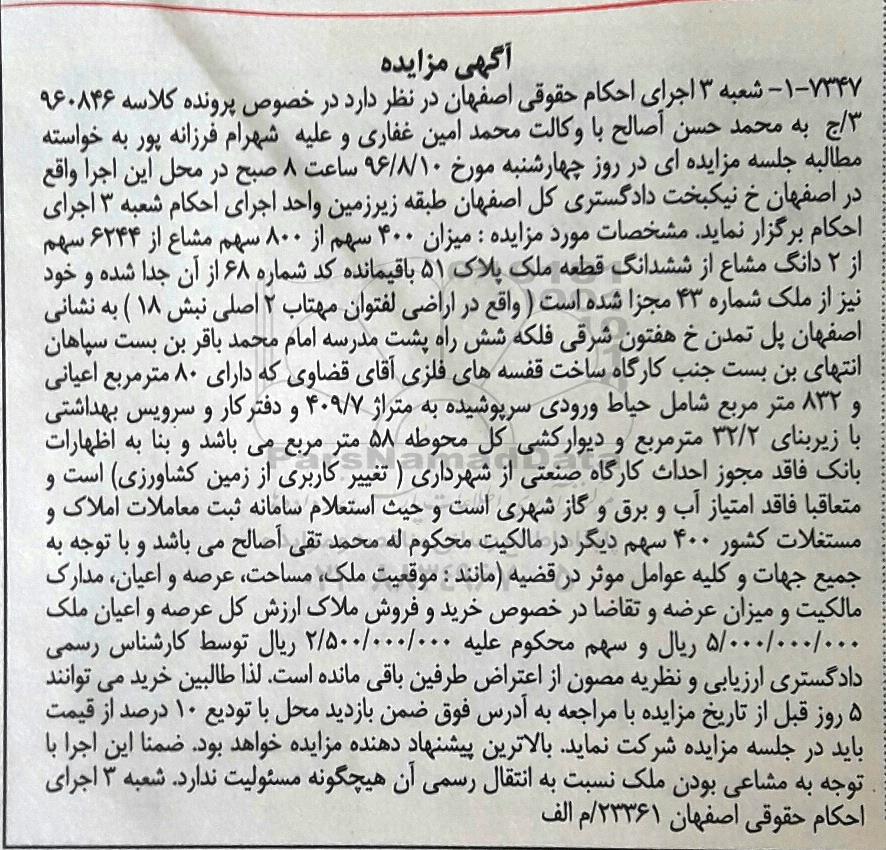 آگهی مزایده
۷۳۴۷-۱- شعبه ۳ اجرای احکام حقوقی اصفهان در نظر دارد در خصوص پرونده کلاسه ۹۶۰۸۴۶
۳/ج به محمد حسن آصالح با وکالت محمد امین غفاری و علیه شهرام فرزانه پور به خواسته
مطالبه جلسه مزایده ای در روز چهارشنبه مورخ ۹۶/۸/۱۰ ساعت ۸ صبح در محل این اجرا واقع
در اصفهان خ نیکبخت دادگستری کل اصفهان طبقه زیرزمین واحد اجرای احکام شعبه ۳ اجرای
احکام برگزار نماید. مشخصات مورد مزایده : میزان ۴۰۰ سهم از ۸۰۰ سهم مشاع از ۶۲۴۴ سهم
از ۲ دانگ مشاع از ششدانگ قطعه ملک پلاک ۵۱ باقیمانده کد شماره ۶۸ از آن جدا شده و خود
نیز از ملک شماره ۴۳ مجزا شده است ( واقع در اراضی لفتوان مهتاب ۲ اصلی نبش ۱۸ ) به نشانی
اصفهان پل تمدن خ هفتون شرقی فلکه شش راه پشت مدرسه امام محمد باقر بن بست سپاهان
انتهای بن بست جنب کارگاه ساخت قفسه های فلزی آقای قضاوی که دارای ۸۰ مترمربع اعیانی
و ۸۳۲ متر مربع شامل حیاط ورودی سرپوشیده به متراژ ۴۰۹/۷ و دفترکار و سرویس بهداشتی
با زیربنای ۳۲/۲ مترمربع و دیوارکشی کل محوطه ۵۸ متر مربع می باشد و بنا به اظهارات
بانک فاقد مجوز احداث کارگاه صنعتی از شهرداری ( تغییر کاربری از زمین کشاورزی) است و
متعاقبا فاقد امتیاز آب و برق و گاز شهری است و حیث استعلام سامانه ثبت معاملات املاک و
مستغلات کشور ۴۰۰ سهم دیگر در مالکیت محکوم له محمد تقی آصالح می باشد و با توجه به
جمیع جهات و کلیه عوامل موثر در قضیه (مانند : موقعیت ملک، مساحت، عرصه و اعیان، مدارک
مالکیت و میزان عرضه و تقاضا در خصوص خرید و فروش ملاک ارزش کل عرصه و اعیان ملک
۵/۰۰۰/۰۰۰/۰۰۰ ریال و سهم محکوم علیه ۲/۵۰۰/۰۰۰/۰۰۰ ریال توسط کارشناس رسمی
دادگستری ارزیابی و نظریه مصون از اعتراض طرفین باقی مانده است. لذا طالبین خرید می توانند
۵ روز قبل از تاریخ مزایده با مراجعه به آدرس فوق ضمن بازدید محل با تودیع ۱۰ درصد از قیمت
باید در جلسه مزایده شرکت نماید. بالاترین پیشنهاد دهنده مزایده خواهد بود. ضمنا این اجرا با
توجه به مشاعی بودن ملک نسبت به انتقال رسمی آن هیچگونه مسئولیت ندارد. شعبه ۳ اجرای
احکام حقوقی اصفهان ۲۳۳۶۱/م الف
ParsNamadData